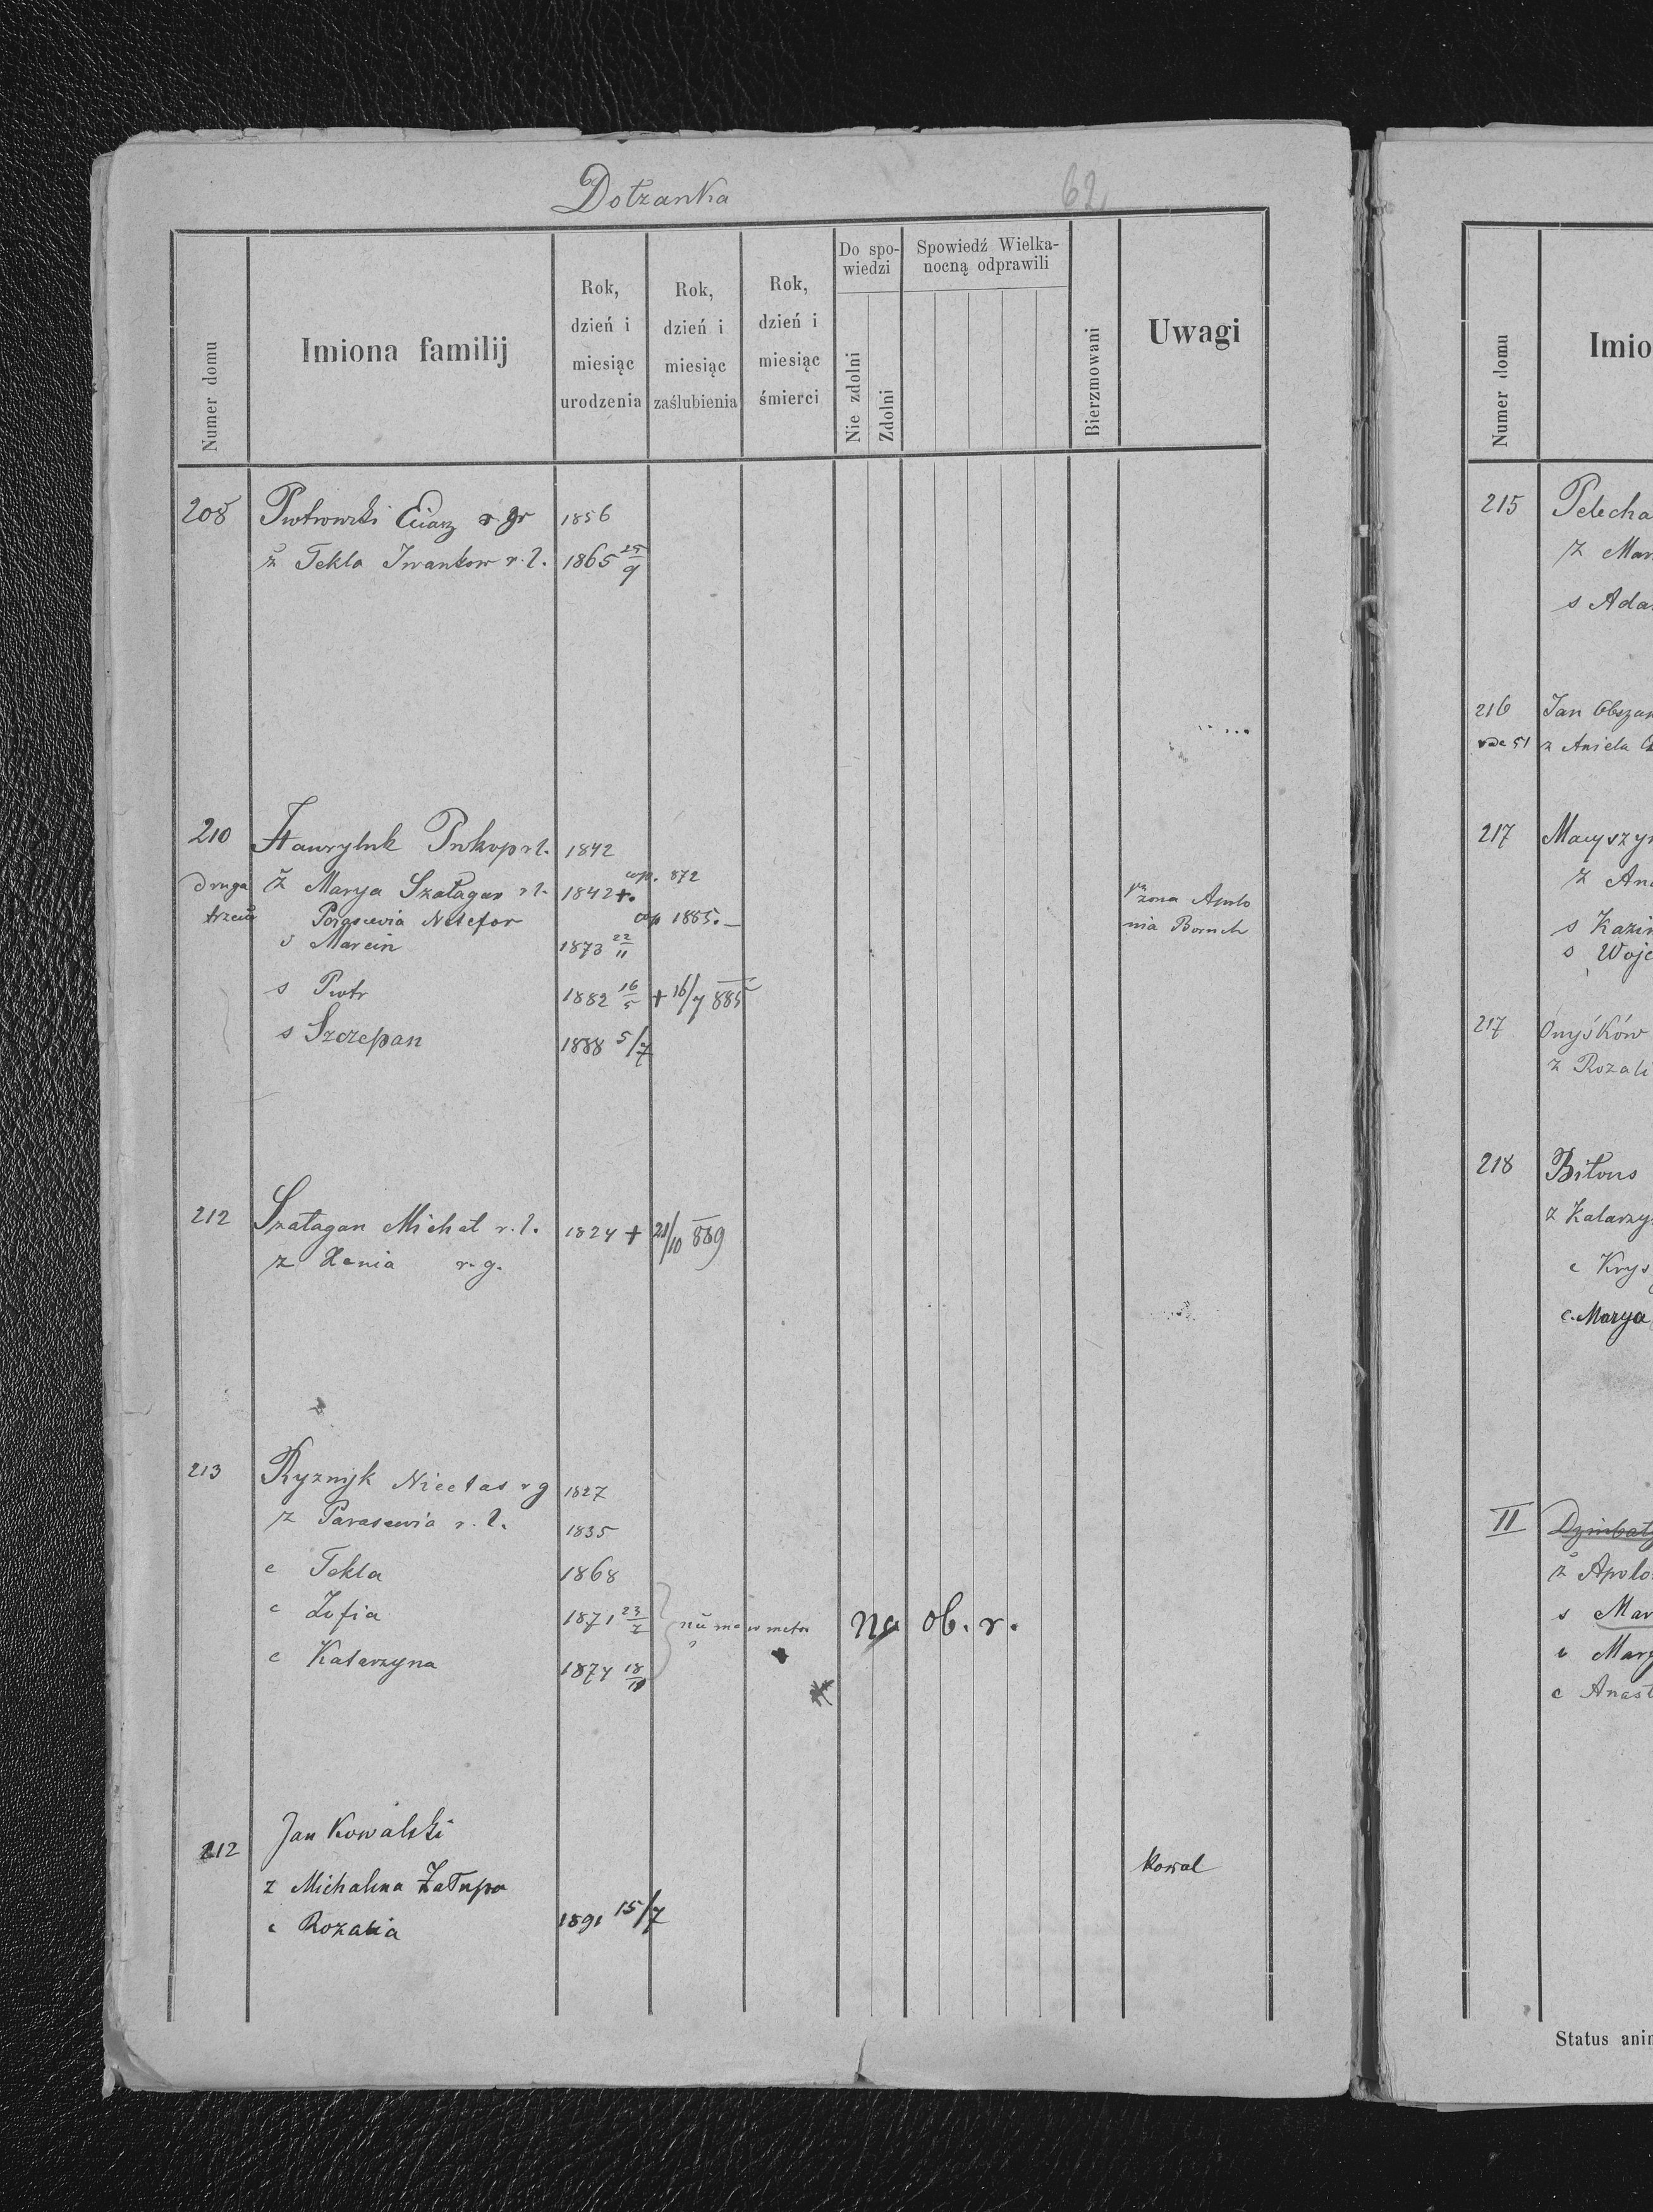 Dołzanka
62
Numer domu
Imiona familij
Rok, dzień i miesiąc urodzenia
Rok, dzień i miesiąc zaślubienia
Rok, dzień i miesiąc śmierci
Do spowiedzi
Nie zdolni
Zdolni
Spowiedź Wielkanocną odprawili
Bierzmowani
Uwagi
208 Piotrowski Eliasz r gr 1856
ż Tekla Iwanków r. l. 1865 25/9
210 Hawryluk Prokop r l. 1842
druga ż Marya Szałagan r l. 1842 +. cop. 872
żona Anto
nia Boruch
trzecia Parascevia Netefor cop 1885. —
s Marcin 1873 22/11
s Piotr 1882 16/5 + 16/7 885
s Szczepan 1888 5/7
212 Szałagan Michał r. l. 1824 + 21/10 889
z Xenia r. g.
213 Ryznyk Nicetas r g 1827
z Parascevia r. l. 1835
c Tekla 1868
c Zofia 1871 23/7 niema w metr na ob. r.
c Katarzyna 1874 18/10
212 Jan Kowalski
kowal
z Michalina Załupa
c Rozalia 1891 15/7
Numer domu
Imio
215 Pelecha
z Mar
s Ada
216 Jan Obszań
vide 51 z Aniela
217 Macyszyn
z An
s Kazi
s Wojc
217 Onyśków
z Rozali
218 Biłous
z Katarzy
c Krys
c. Marya
II
ż Apolo
s Mar
c Mary
c Anast
Status anim